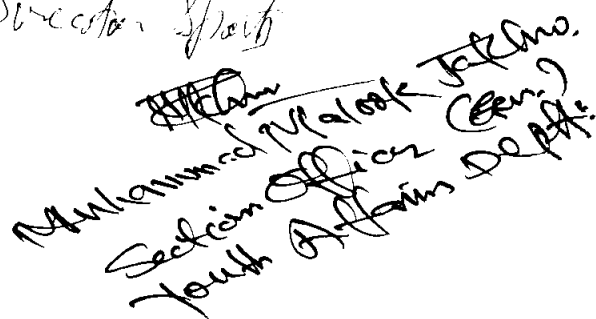 Director Sports
Muhammad Malook Jakhro.
Section Officer (Gen.)
Youth Affairs Deptt: